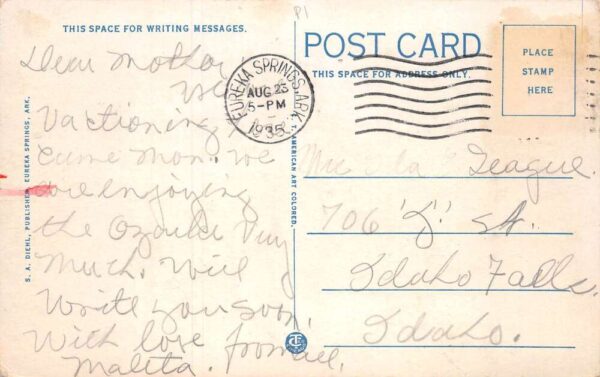 THIS SPACE FOR WRITING MESSAGES.
Dear Mother
We
Vactioning
Came Mon. We
are enjoying
the Ozarks Very
Much. Will
Write you soon.
With love from all,
Maleta.
S. A. DIEHL, PUBLISHER, EUREKA SPRINGS, ARK.
P1
EUREKA SPRINGS, ARK.
AUG 23
5-PM
1935
AMERICAN ART COLORED.
POST CARD
THIS SPACE FOR ADDRESS ONLY.
PLACE
STAMP
HERE
League
706 "J" St.
Idaho Falls
Idaho.